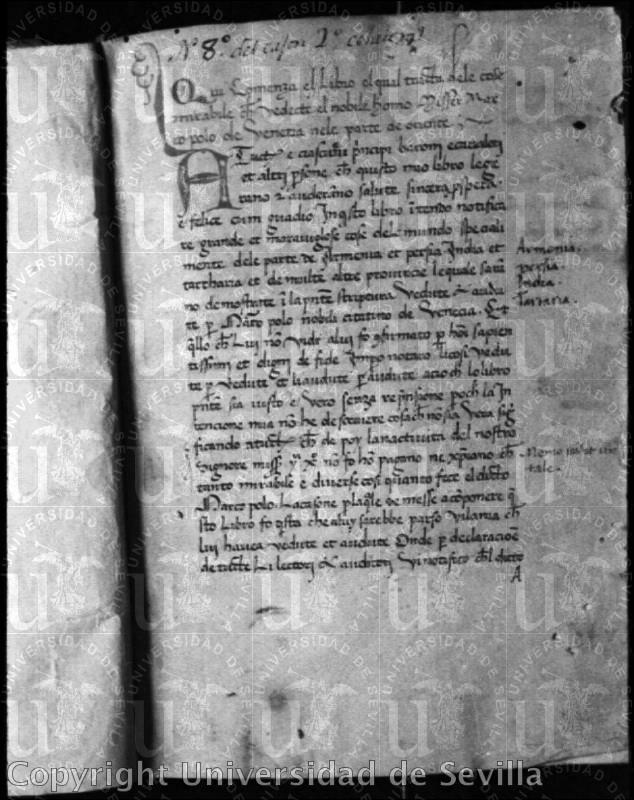 Nº 8º del cajon 1º
Qui Comenza el Libro el qual tracta dele cose
mirabile che vedete el nobile homo Misser Mar
co polo de Venetia nele parte de oriente
A tuct e ciascuni principi baroni e cavaleri
et altri persone che questo mio libro lege
rano et auderano salute sincera prospera
e felice cum gaudio In questo libro intendo notifica
re grande et maravigliose cose del mundo speciali
mente dele parte de Armenia et persia India et
tartharia et de molte altre provincie le quale sarā
no demostrate ī la pnte scriptura Vedute et audu
te p Marco polo nobili citatino de Venecia. Et
qllo ch Lui nō vidi alui fo gfirmato p hōi sapien
tissimi et digni de fede Impo notaro li cosi vedu
te p vedute et li audute p audute acio ch lo libro
pnte sia iusto e vero senza
tencione mia nō he de scrivere cosa ch nō sia vera sig
ficando a tucti ch de poy la nactivita del nostro
Signore miss yu xpo nō fo hō pagano ne xpiano ch
tanto mirabile e diverse cosi quanto fece el dicto
Marco polo. La casone p laqle de messe a cōponere q
sto Libro fo qsta che aluy sarebbe parso vilania ch
lui havea vedute et audute Onde p declaracioē
de tucti Li lectori et auditori Vi notifico chl dicto
A
Armenia.
persia.
India.
Tartaria.
Nemo
tale.
Copyright Universidad de Sevilla